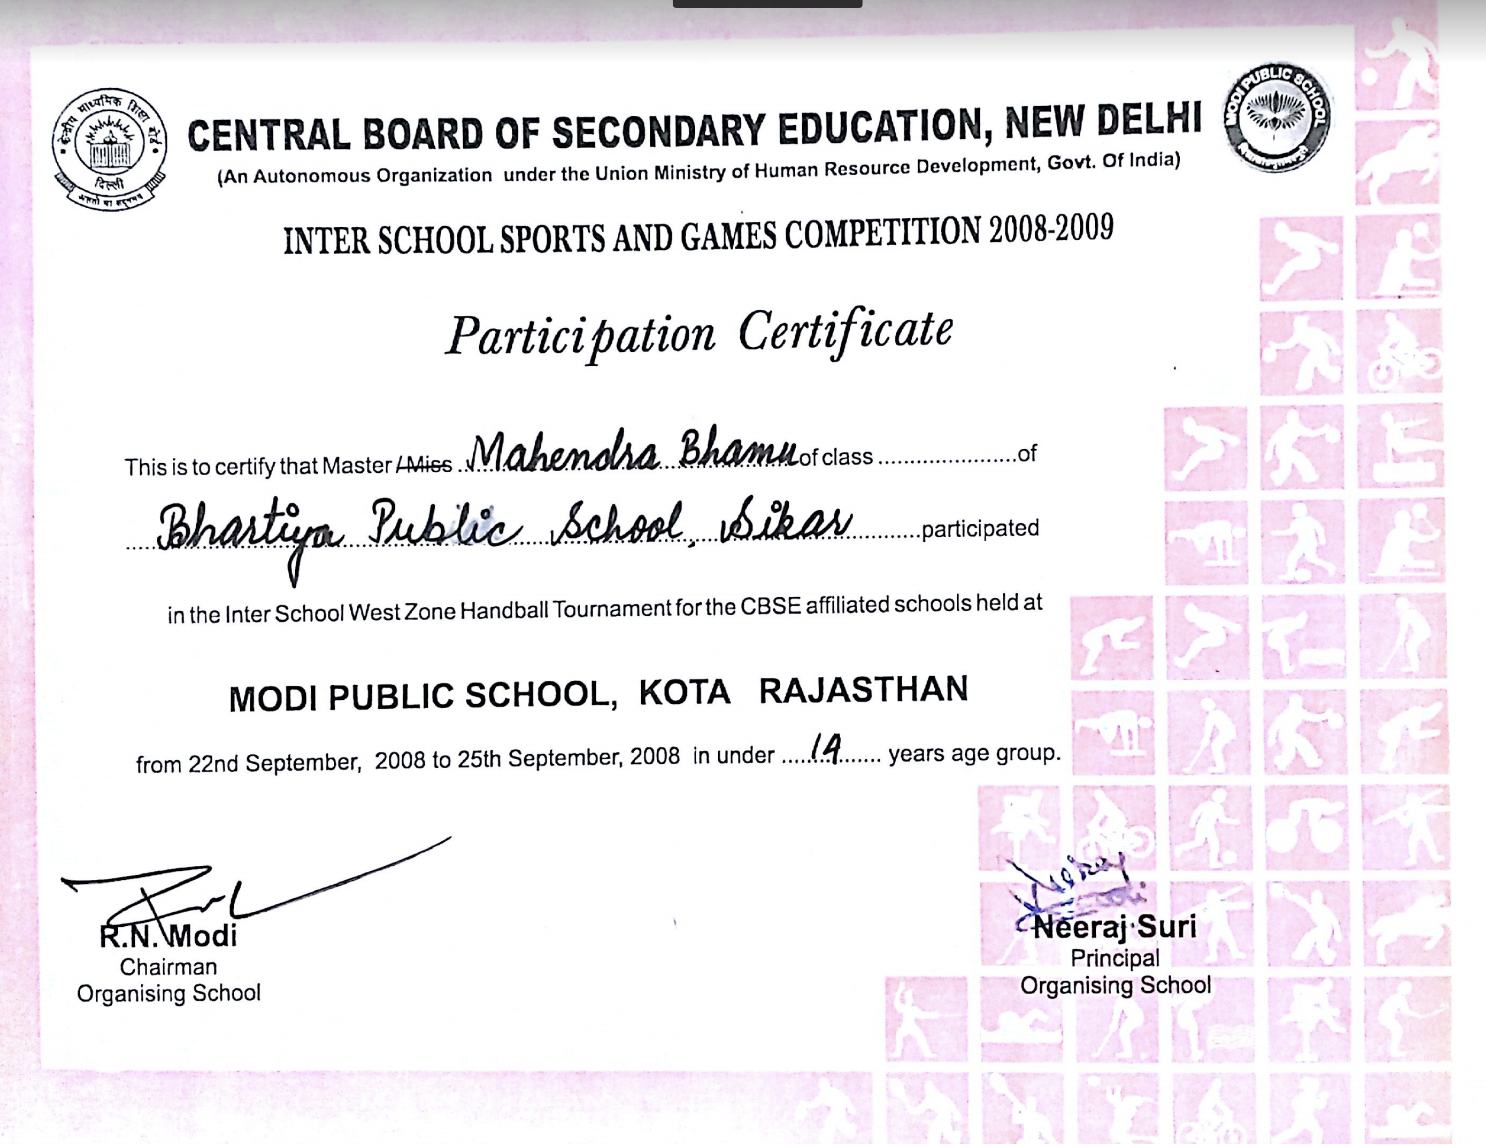 केन्द्रीय माध्यमिक शिक्षा बोर्ड
दिल्ली
असतो मा सद्गमय
MODI PUBLIC SCHOOL
CENTRAL BOARD OF SECONDARY EDUCATION, NEW DELHI
(An Autonomous Organization under the Union Ministry of Human Resource Development, Govt. Of India)
INTER SCHOOL SPORTS AND GAMES COMPETITION 2008-2009
Participation Certificate
This is to certify that Master /Miss ..Mahendra Bhamu of class ......................of
Bhartiya Public School, Sikar ............participated
in the Inter School West Zone Handball Tournament for the CBSE affiliated schools held at
MODI PUBLIC SCHOOL, KOTA RAJASTHAN
from 22nd September, 2008 to 25th September, 2008 in under .....14...... years age group.
R.N. Modi
Chairman
Organising School
Neeraj Suri
Principal
Organising School